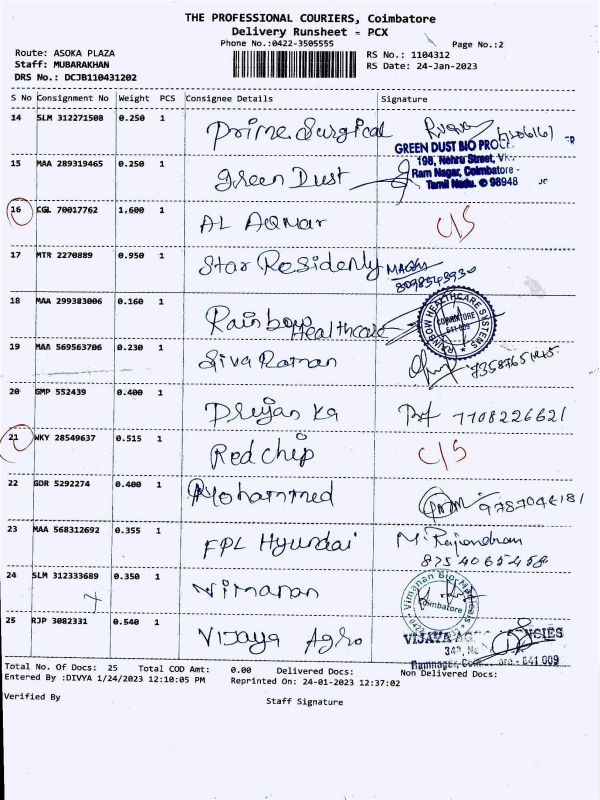 THE PROFESSIONAL COURIERS, Coimbatore
Delivery Runsheet - PCX
Phone No.:0422-3505555
Page No.:2
Route: ASOKA PLAZA
RS No.: 1104312
Staff: MUBARAKHAN
RS Date: 24-Jan-2023
DRS No.: DCJB110431202
S No Consignment No Weight PCS Consignee Details Signature
14 SLM 312271508 0.250 1 Prime Surgical
GREEN DUST BIO
198, Nehru Street,
15 MAA 289319465 0.250 1 Green Dust Ram Nagar, Coimbatore -
Tamil Nadu. © 98948
16 CGL 70017762 1.600 1 AL AQMAR C/S
17 MTR 2270889 0.950 1 Star Residenly
8098548930
18 MAA 299383006 0.160 1 Rainbow Healthcare RAINBOW HEALTHCARE SYSTEMS
COIMBATORE
641 009
19 MAA 569563706 0.230 1 Siva Raman
20 GMP 552439 0.400 1 Priyanka 7708226621
21 WKY 28549637 0.515 1 Redchip C/S
22 GDR 5292274 0.400 1 Mohammed 9787046181
23 MAA 568312692 0.355 1 FPL Hyundai M. Rajendran
8754065458
24 SLM 312333689 0.350 1 Vimanan Vimanan Bio
Coimbatore
25 RJP 3082331 0.540 1 Vijaya Agro VIJAYA
641 009
Total No. Of Docs: 25 Total COD Amt: 0.00 Delivered Docs: Non Delivered Docs:
Entered By :DIVYA 1/24/2023 12:10:05 PM Reprinted On: 24-01-2023 12:37:02
Verified By
Staff Signature